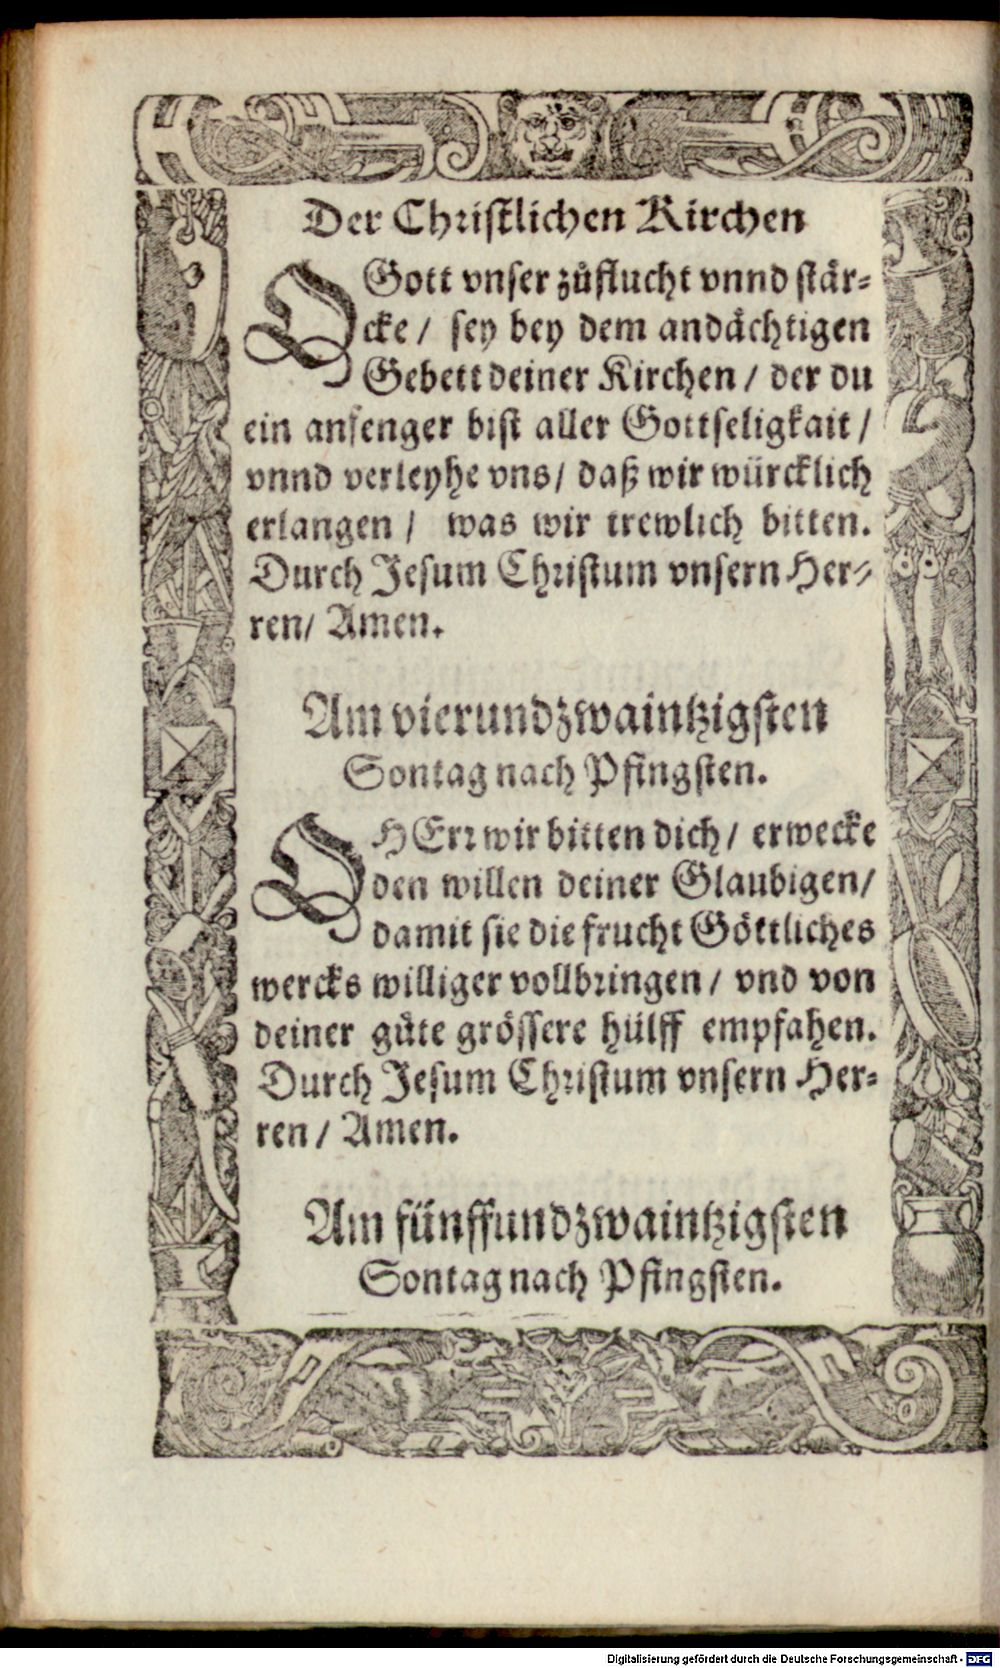 Der Christlichen Kirchen
O Gott vnser zůflucht vnnd stär-
cke / sey bey dem andächtigen
Gebett deiner Kirchen / der du
ein anfenger bist aller Gottseligkait /
vnnd verleyhe vns / daß wir würcklich
erlangen / was wir trewlich bitten.
Durch Jesum Christum vnsern Her-
ren / Amen.
Am vierundzwaintzigsten
Sontag nach Pfingsten.
O HErr wir bitten dich / erwecke
den willen deiner Glaubigen /
damit sie die frucht Göttliches
wercks williger vollbringen / vnd von
deiner gůte grössere hülff empfahen.
Durch Jesum Christum vnsern Her-
ren / Amen.
Am fünffundzwaintzigsten
Sontag nach Pfingsten.
Digitalisierung gefördert durch die Deutsche Forschungsgemeinschaft - DFG